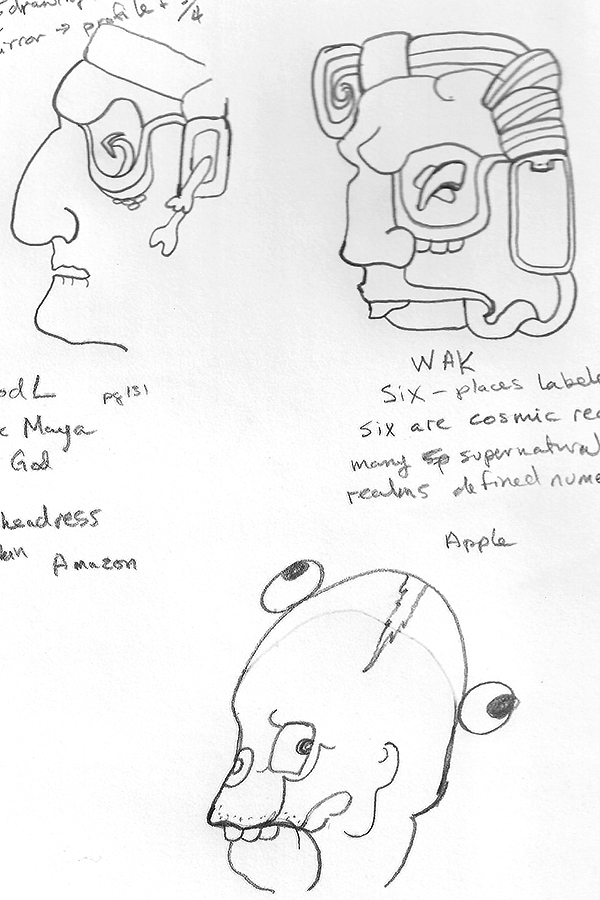 mirror → profile + 3/4
God L pg 131
Maya
God
headress
Amazon
WAK
Six - places labele
six are cosmic rea
many supernatural
realms defined nume
Apple